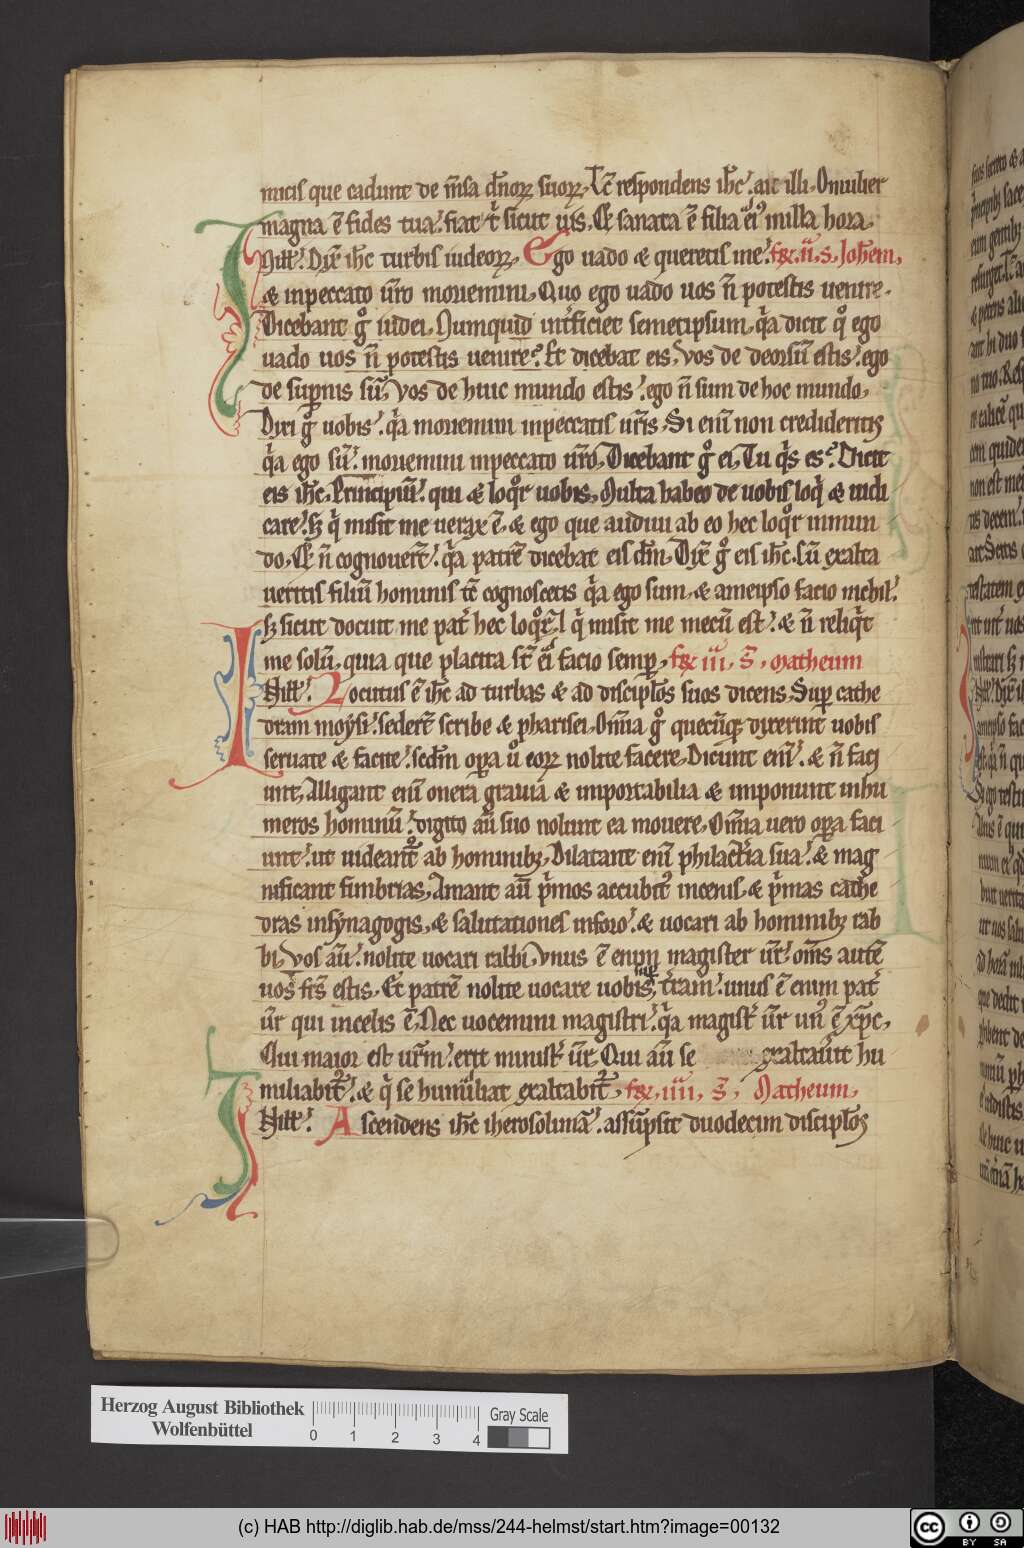 micis que cadunt de m̄sa dn̄oꝝ suoꝝ. Tc̄ respondens ih̄c. ait illi. O mulier
magna ē fides tua. fiat t̉ sicut uis. Et sanata ē filia ei᷒ in illa hora.
In ill̄. Dix̄ ih̄c turbis iudeoꝝ. Ego uado & queretis me. fr̄. ii. s. Joh̄em.
& in peccato ur̄o moriemini. Quo ego uado uos n̄ potestis uenire.
Dicebant gͦ iudei. Numquid int̉ficiet semetipsum. qͣa dicit qͥ ego
uado uos n̄ potestis uenire. Et dicebat eis. Vos de deorsū estis. ego
de suꝑnis sū. Vos de hoc mundo estis. ego n̄ sum de hoc mundo.
Dixi gͦ uobis. qͣa moriemini in peccatis ur̄is. Si eni̅ non credideritis
qͣa ego sū. moriemini in peccato ur̄o. Dicebant gͦ ei. Tu qͥs es. Dicit
eis ih̄c. Principiū. qui & loqͦr uobis. Multa habeo de uobis loqͥ & iudi
care. sꝫ qͥ misit me uerax ē. & ego que audiui ab eo hec loqͦr in mun
do. Et n̄ cognouer̄t. qͣa patrē dicebat eis dm̄. Dix̄ gͦ eis ih̄c. Cū exalta
ueritis filiū hominis tc̄ cognoscetis qͣa ego sum. & a meipso facio nichil.
sꝫ sicut docuit me pat̉ hec loqͦr. & qͥ misit me mecū est. & n̄ reliqͥt
me solū. quia que placita st̄ ei facio semꝑ. fr̄ iii. s̄. Matheum
In ill̄. Locutus ē ih̄c ad turbas & ad discipl̄os suos dicens. Suꝑ cathe
dram moẏsi. seder̄t scribe & pharisei. Om̄ia gͦ quecūqꝫ dixerint uobis
seruate & facite. scd̄m oꝑa uͦ eoꝝ nolite facere. Dicunt eni̅. & n̄ faci
unt. Alligant eni̅ onera grauia & importabilia & imponunt in hu
meros hominū. digito aū suo nolunt ea mouere. Om̄ia uero oꝑa faci
unt. ut uideant᷑ ab hominibꝫ. Dilatant eni̅ philacteria sua. & mag
nificant fimbrias. Amant aū pͥmos accubit᷒ in cenis. & pͥmas cathe
dras in sẏnagogis. & salutationes in foro. & uocari ab hominibꝫ rab
bi. Vos aū. nolite uocari rabbi. Vnus ē enim magister ur̄. om̄s autē
uos fr̄s estis. Et patrē nolite uocare uobis sup̄ t̉ram. unus ē enim pat̉
ur̄ qui in celis ē. Nec uocemini magistri. qͣa magist̉ ur̄ un᷒ ē xp̄c.
Qui maior est ur̄m. erit minist̉ ur̄. Qui aū se exaltau̅it hu
miliabit᷑. & qͥ se humiliat exaltabit᷑. fr̄. iiii. s̄. Matheum.
In ill̄. Ascendens ih̄c iherosolimā. assūpsit duodecim discipl̄os
Herzog August Bibliothek
Wolfenbüttel
0 1 2 3 4
Gray Scale
(c) HAB http://diglib.hab.de/mss/244-helmst/start.htm?image=00132
cc BY SA